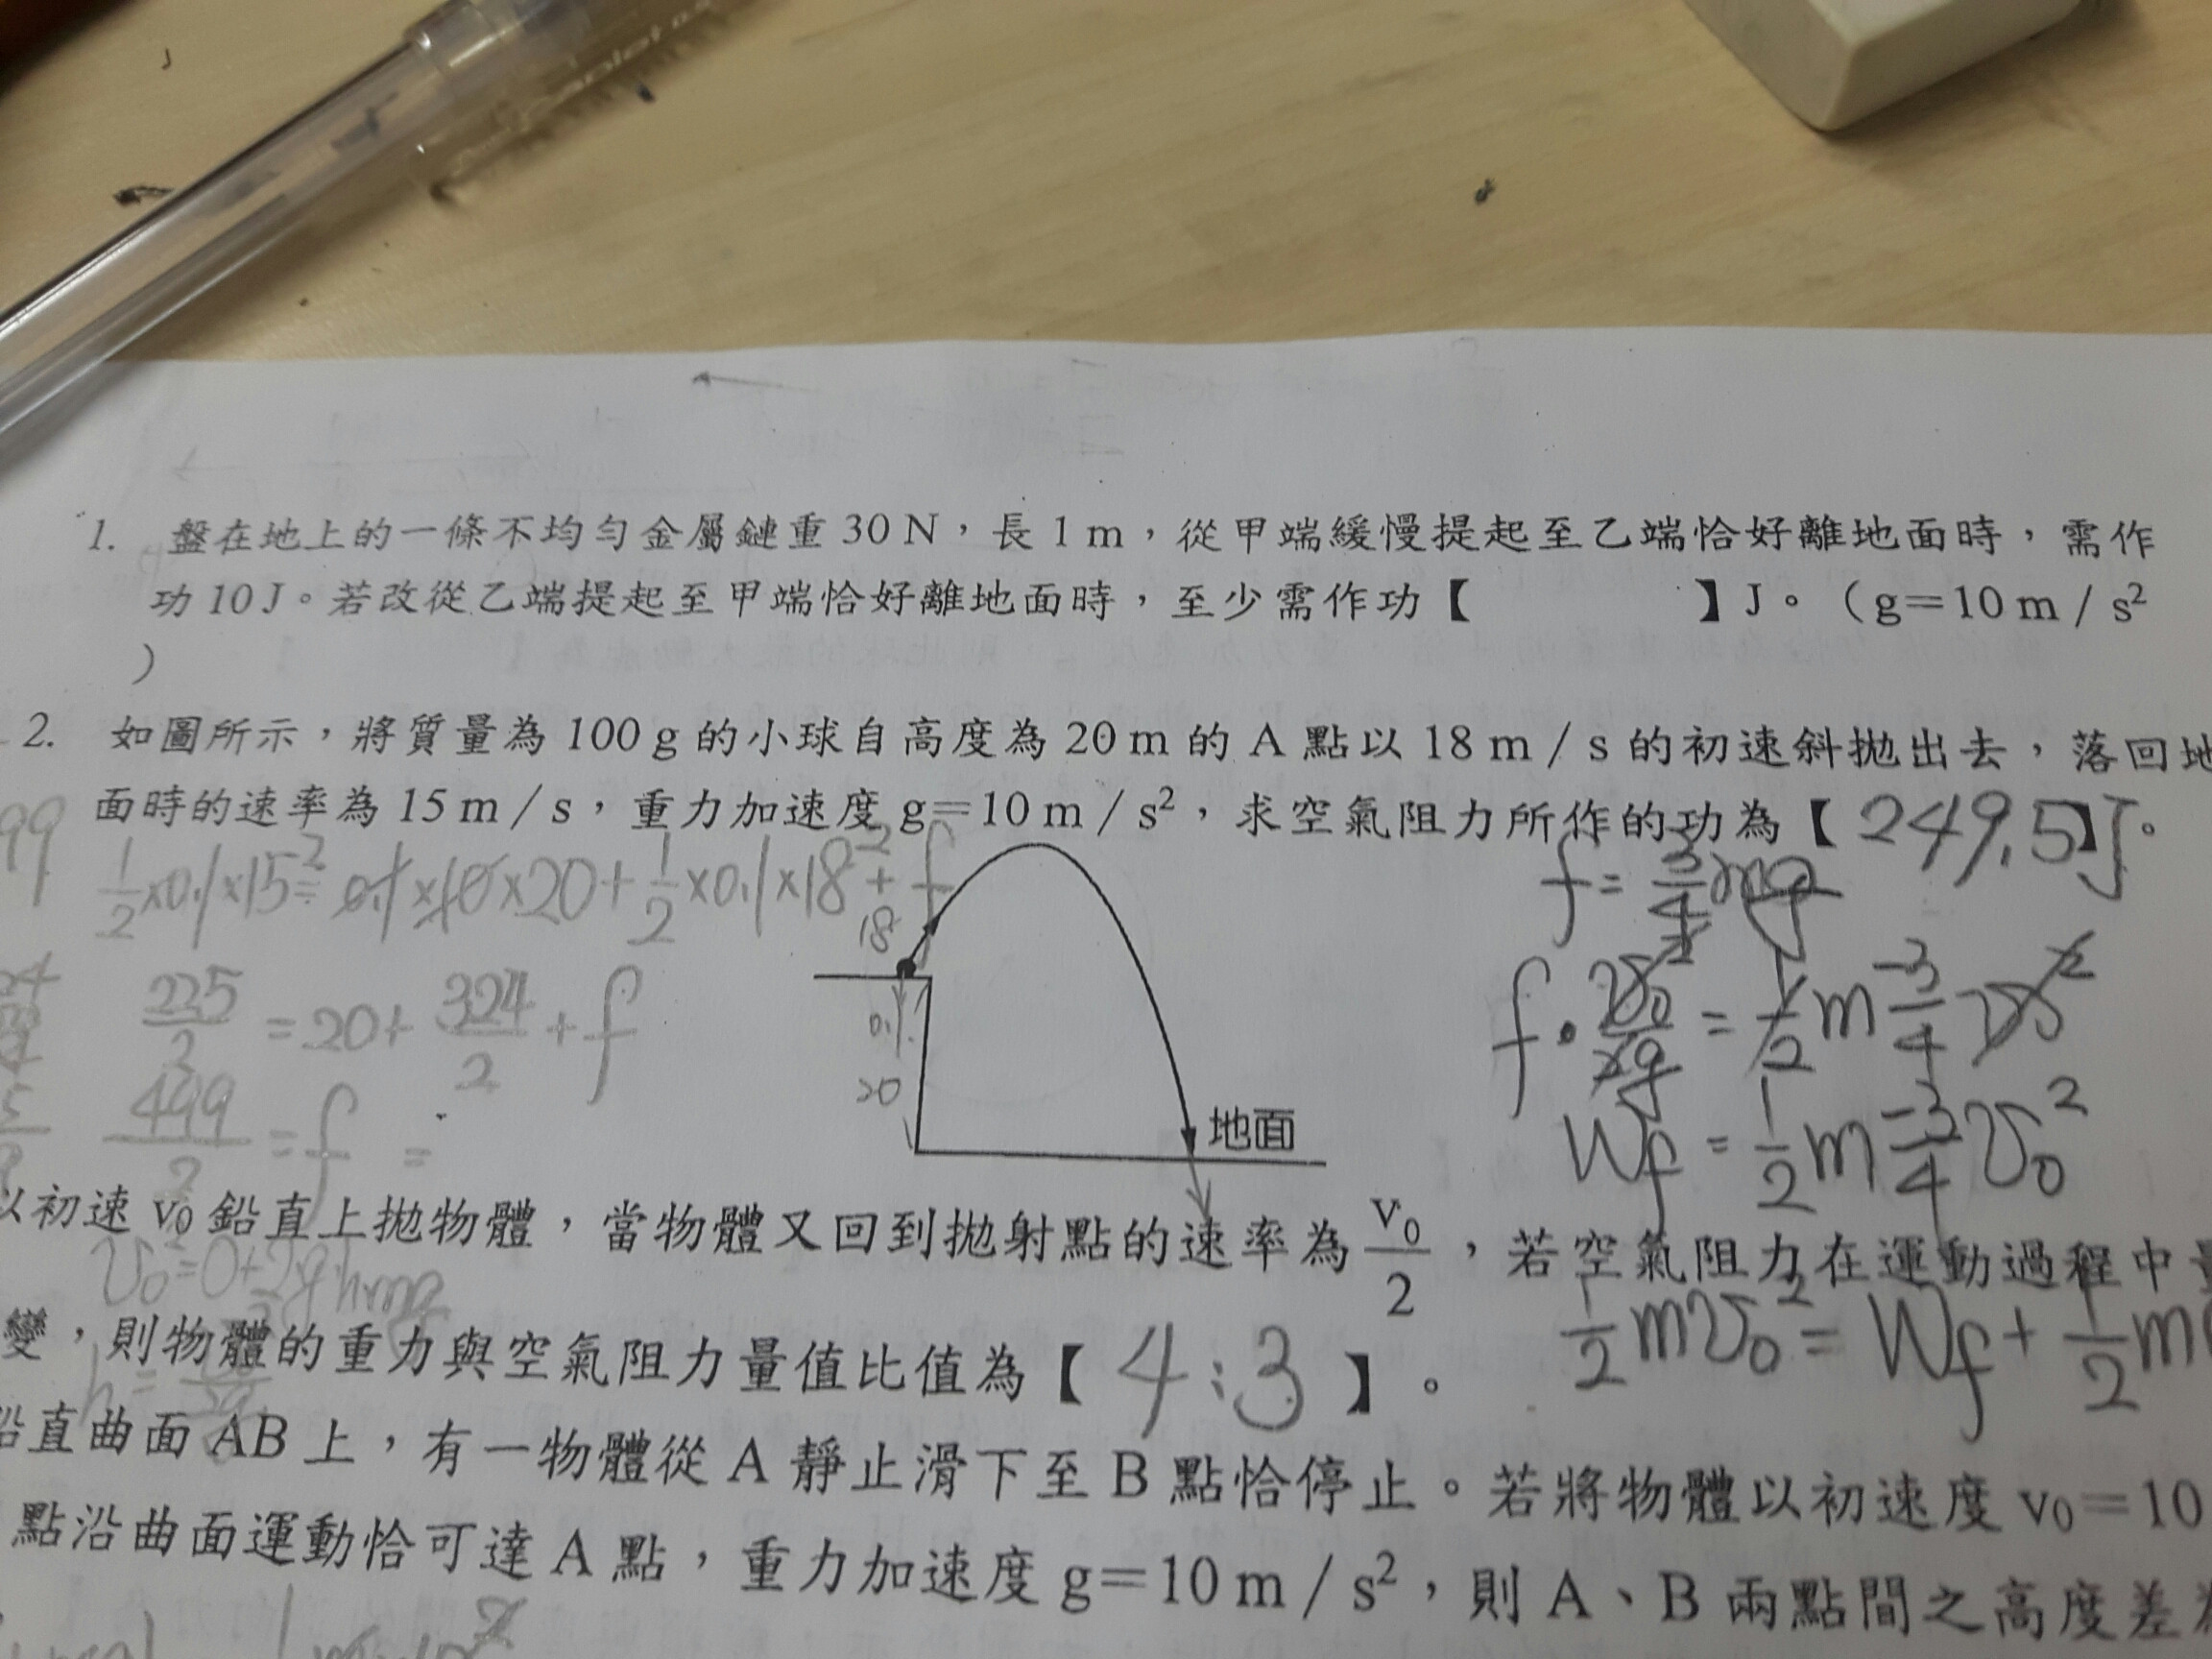 1. 盤在地上的一條不均勻金屬鏈重 30 N，長 1 m，從甲端緩慢提起至乙端恰好離地面時，需作
功 10 J。若改從乙端提起至甲端恰好離地面時，至少需作功【 】J。（g＝10 m / s²
）
2. 如圖所示，將質量為 100 g 的小球自高度為 20 m 的 A 點以 18 m / s 的初速斜拋出去，落回地
面時的速率為 15 m / s，重力加速度 g＝10 m / s²，求空氣阻力所作的功為【 249.5 】J。
99
1/2 ×0.1×15² = 0.1×10×20+ 1/2 ×0.1×18² + f
f = 3/4 mg
18
225/2 = 20+ 324/2 + f
0.1
20
499/2 = f =
地面
Wf = 1/2 m -3/4 v₀²
以初速 v₀ 鉛直上拋物體，當物體又回到拋射點的速率為 v₀/2，若空氣阻力在運動過程中
1/2 mv₀² = Wf + 1/2 m
變，則物體的重力與空氣阻力量值比值為【 4:3 】。
鉛直曲面 AB 上，有一物體從 A 靜止滑下至 B 點恰停止。若將物體以初速度 v₀＝10
點沿曲面運動恰可達 A 點，重力加速度 g＝10 m / s²，則 A、B 兩點間之高度差為